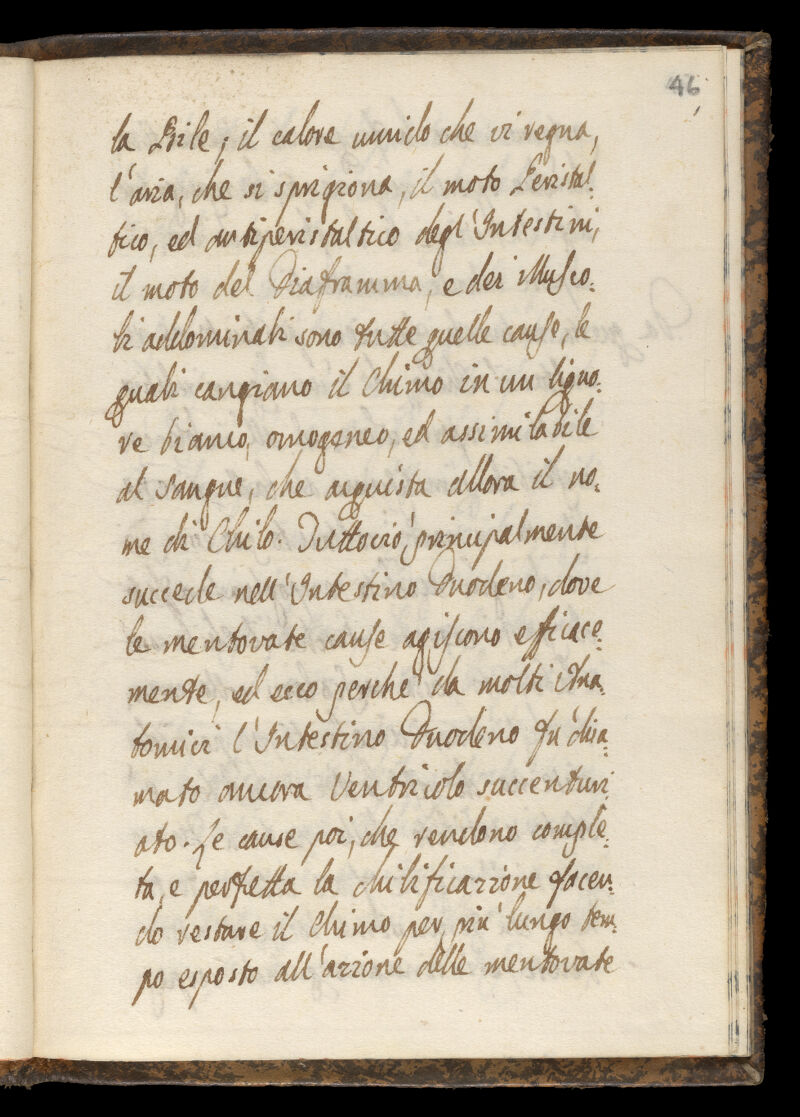 46
la Bile, il calore umido che vi regna,
l'aria, che si sprigiona, il moto Peristal:
tico, ed antiperistaltico degl'Intestini,
il moto del Diaframma, e dei Musco:
li addominali sono tutte quelle cause, le
quali cangiano il Chimo in un liquo:
re bianco, omogeneo, ed assimilabile
al Sangue, che acquista allora il no:
me di Chilo. Tuttociò principalmente
succede nell'Intestino Duodeno, dove
le mentovate cause agiscono efficace:
mente, ed ecco perchè da molti Ana:
tomici l'Intestino Duodeno fù chia:
mato ancora Ventricolo succenturi:
ato. Le cause poi, che rendono comple:
ta, e perfetta la chilificazione facen:
do restare il Chimo per più lungo tem:
po esposto all'azione delle mentovate